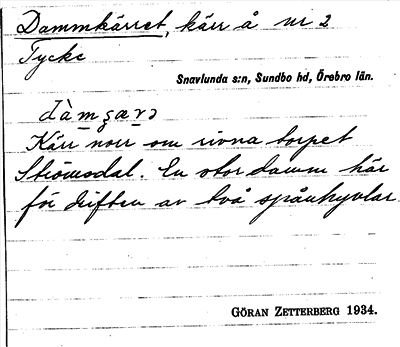 Dammkärret, kärr å nr 2
Tycke
Snavlunda s:n, Sundbo hd, Örebro län.
dàmçærə
Kärr norr om rivna torpet
Strömsdal. En stor damm här
för driften av två spånhyvlar.
GÖRAN ZETTERBERG 1934.